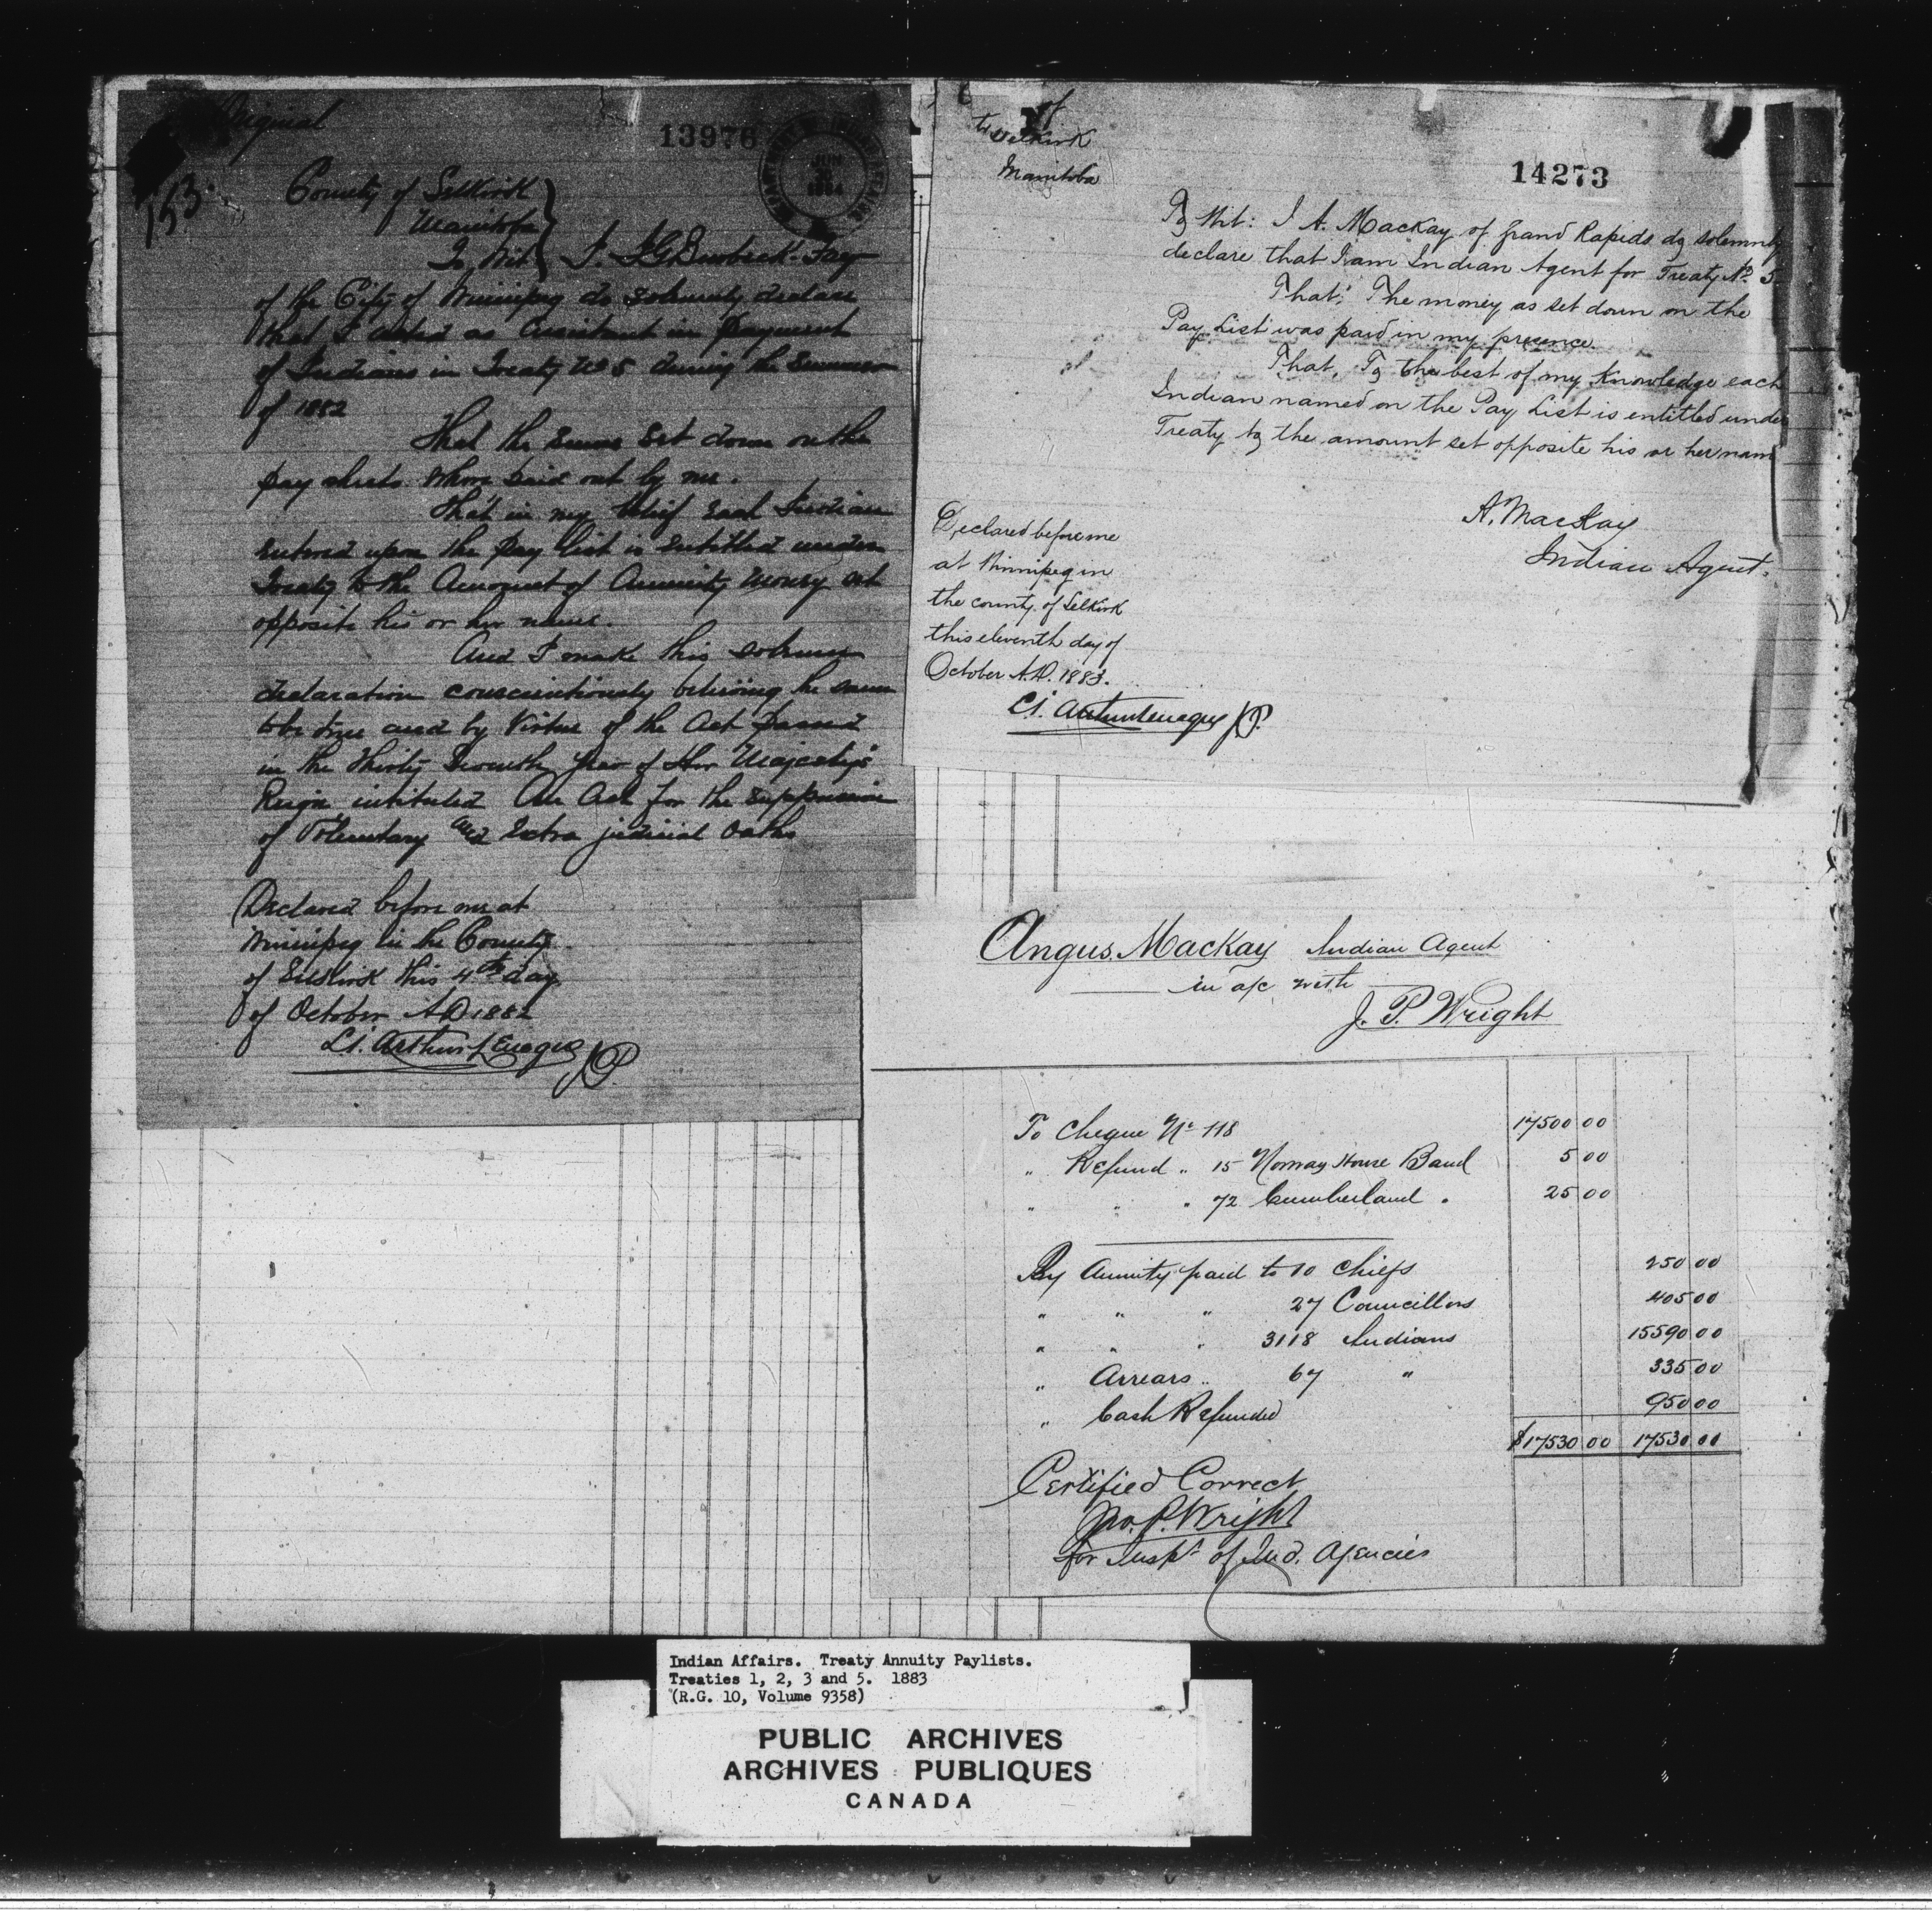 Original
13976
JUN
1884
153
County of Selkirk
Manitoba
To Wit
of the City of Winnipeg do solemnly declare
that I acted as Assistant in Payment
of Indians in Treaty No 5 during the Summer
of 1882
That the Sums Set down on the
pay sheets whore paid out by me.
That in my belief Each Indian
Entered upon the Pay List is Entitled under
Treaty to the Amount of Annuity Money set
opposite his or her name.
And I make this solemn
declaration conscientiously believing the same
to be true and by Virtue of the Act passed
in the Thirty Seventh year of Her Majesty's
Reign intituled An Act for the suppression
of Voluntary and Extra judicial Oaths
Declared before me at
Winnipeg in the County
of Selkirk this 4th day
of October AD 1882
JP
of
Selkirk
Manitoba
14273
To Wit: I A. MacKay of Grand Rapids do solemnly
declare that I am Indian Agent for Treaty No. 5.
That: The money as set down on the
Pay List was paid in my presence
That, To the best of my Knowledge each
Indian named on the Pay List is entitled under
Treaty to the amount set opposite his or her nam
A. MacKay
Indian Agent.
Declared before me
at Winnipeg in
the county of Selkirk
this eleventh day of
October A.D. 1883.
JP.
Angus. MacKay Indian Agent
in a/c with
J. P. Wright
To Cheque No 118 17500 00
" Refund " 15 Norway House Band 5 00
" " " 72 Cumberland " 25 00
By Annuity paid to 10 Chiefs 250 00
" " " 27 Councillors 405 00
" " " 3118 Indians 15590 00
" Arrears " 67 " 335 00
" Cash Refunded 950 00
$17530 00 17530 00
Certified Correct
Jno. P. Wright
for Inspr of Ind. Agencies
Indian Affairs. Treaty Annuity Paylists.
Treaties 1, 2, 3 and 5. 1883
(R.G. 10, Volume 9358)
PUBLIC ARCHIVES
ARCHIVES PUBLIQUES
CANADA